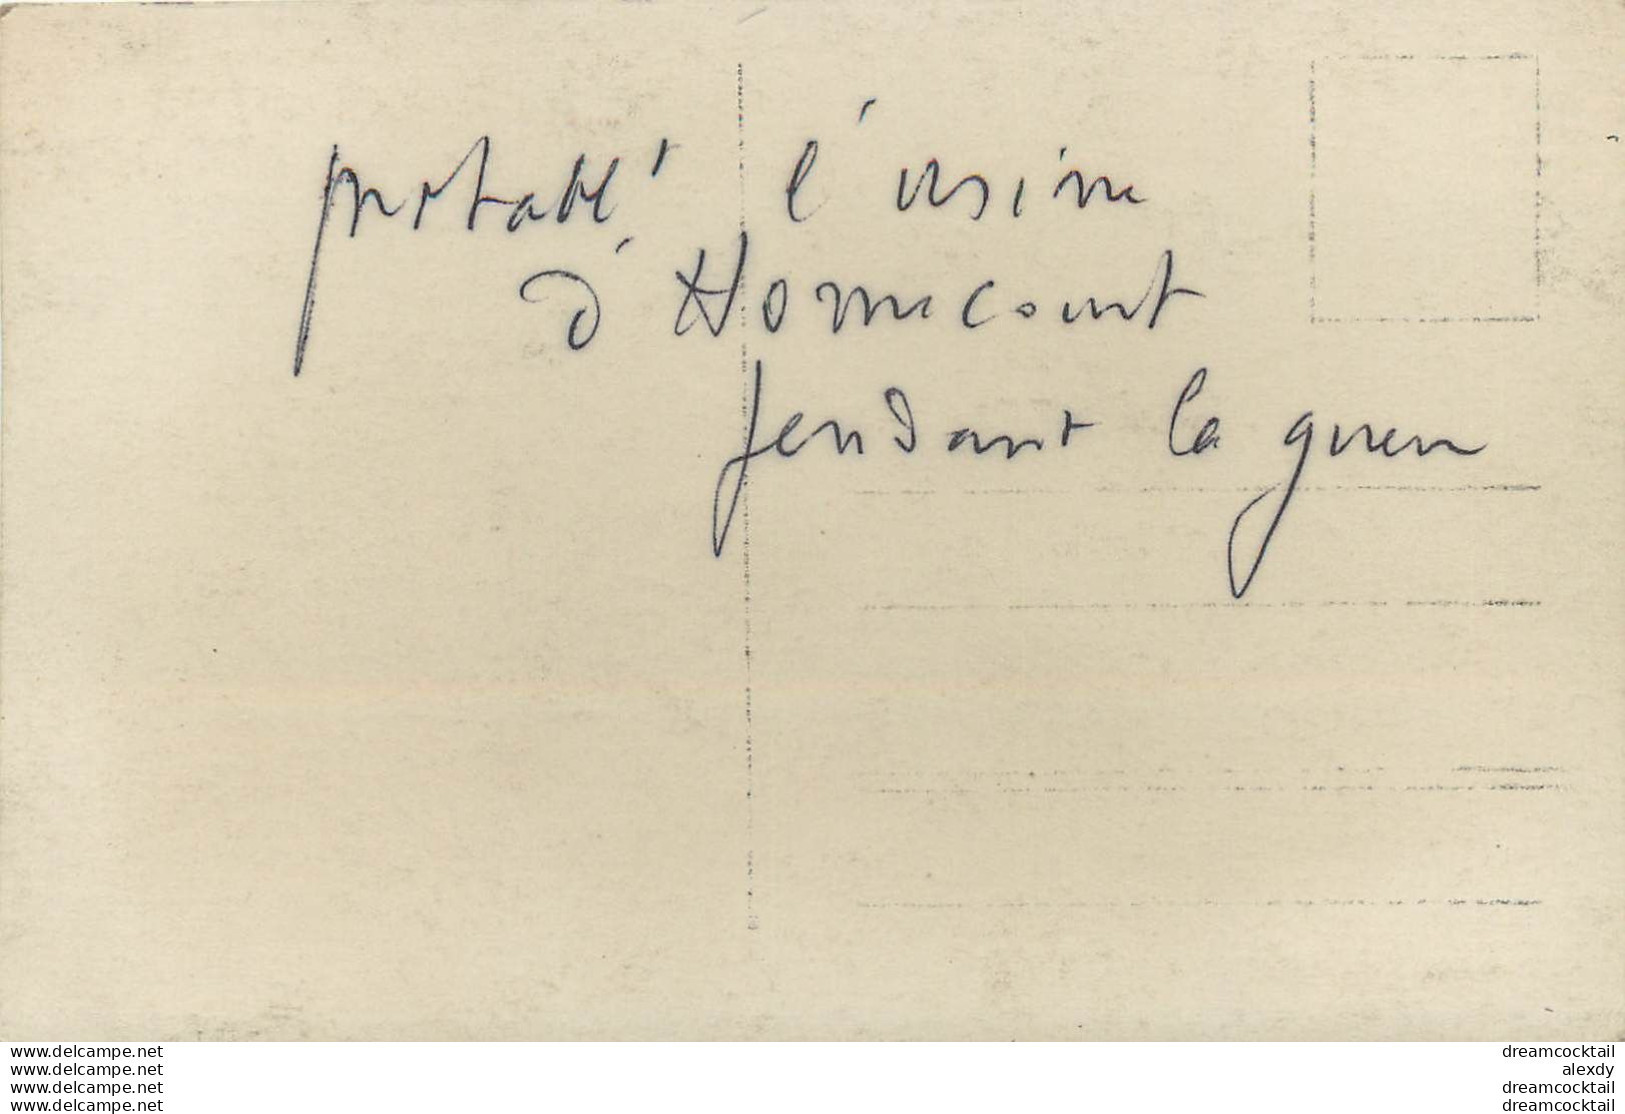 probablt l'usine
d'Homecourt
pendant la guerre
www.delcampe.net
www.delcampe.net
www.delcampe.net
www.delcampe.net
dreamcocktail
alexdy
dreamcocktail
dreamcocktail